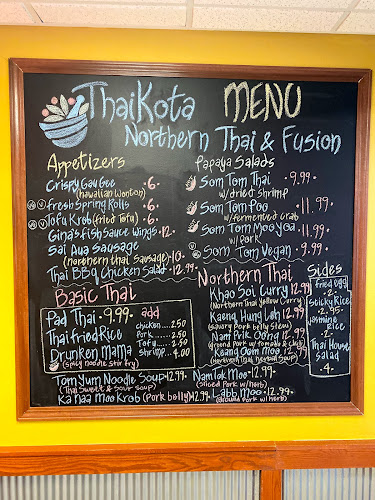 ThaiKota MENU
Northern Thai & Fusion
Appetizers
Crispy Gau Gee 6.
(hawaiian Wonton)
fresh Spring Rolls 6.
Tofu Krob (fried Tofu) 6.
Gina's fish Sauce Wings 12.
Sai Aua Sausage
(northern thai Sausage) 10.
Thai BBQ Chicken Salad 12.99
Papaya Salads
Som Tom Thai 9.99
w/dried shrimp
Som Tom Poo 11.99
w/fermented crab
Som Tom Moo Yoa 11.99
w/pork
Som Tom Vegan 9.99
Basic Thai
Pad Thai 9.99
Thai fried Rice
Drunken Mama
(spicy noodle stir fry)
add
chicken 2.50
Pork 2.50
Tofu 2.50
shrimp 4.00
Tom Yum Noodle Soup 12.99
(Thai sweet & sour soup)
Ka Naa Moo Krob (Pork belly) 12.99
Northern Thai
Khao Soi Curry 12.99
(Northern Thai Yellow Curry)
Kaeng Hung Leh 12.99
(savory Pork belly stew)
Nam Prik Oong 12.99
(ground Pork w/tomato & chili)
Kaeng Oom Moo 12.99
(northern Thai herbal soup)
Nam Tok Moo 12.99
(sliced pork w/herb)
Labb Moo 12.99
(ground pork w/herb)
Sides
fried egg
2.
sticky Rice
2.95
jasmine
Rice
2.
Thai House
Salad
4.